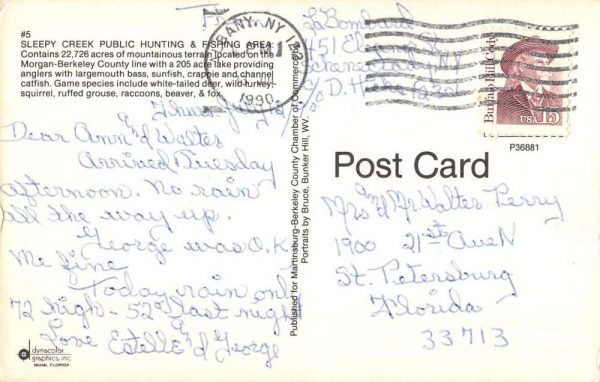 #5
SLEEPY CREEK PUBLIC HUNTING & FISHING AREA
Contains 22,726 acres of mountainous terrain located on the
Morgan-Berkeley County line with a 205 acre lake providing
anglers with largemouth bass, sunfish, crappie and channel
catfish. Game species include white-tailed deer, wild turkey,
squirrel, ruffed grouse, raccoons, beaver, & fox.
From
LaBombard
451 St
Schenectady, NY
c/o D. 
ALBANY, NY
PM
1990
Buffalo Bill Cody
USA 15
P36881
Dear Ann and Walter
Arrived Tuesday
afternoon. No rain
all the way up.
George was O.K.
Me fine
Today rain only
72 high - 52° last night
Love Estelle and George
Published for Martinsburg-Berkeley County Chamber of Commerce by
Portraits by Bruce, Bunker Hill, WV.
Post Card
Mrs and Mr Walter Perry
1900 21st Ave N
St. Petersburg
Florida
33713
dynacolor
graphics, inc.
MIAMI, FLORIDA